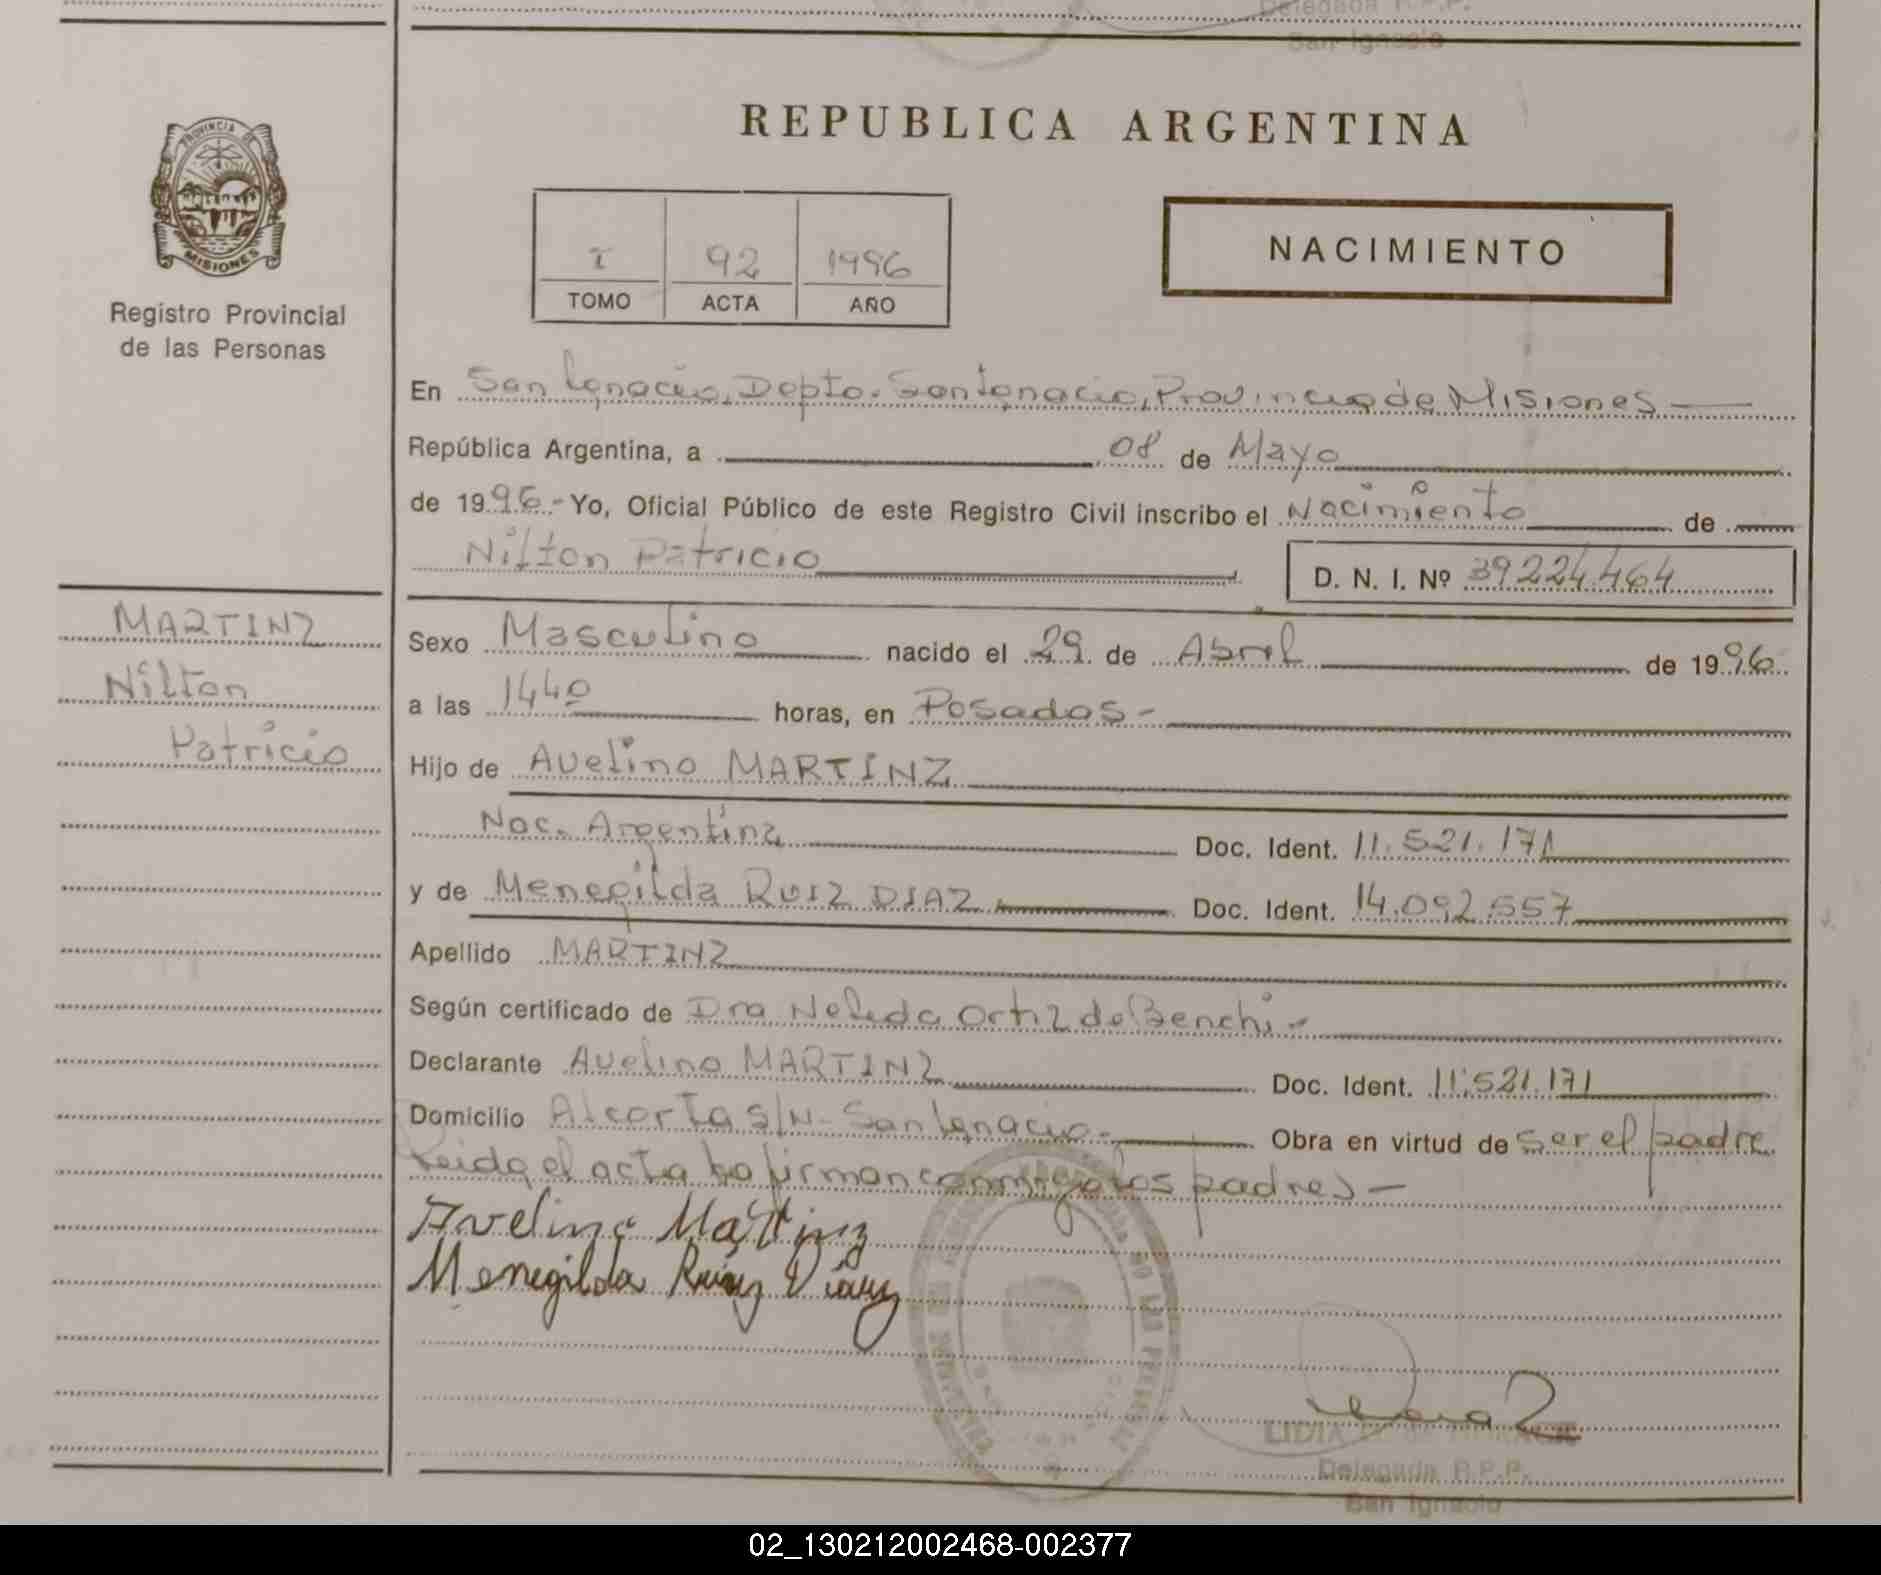 Delegada R.P.P.
San Ignacio
PROVINCIA DE
MISIONES
Registro Provincial
de las Personas
REPUBLICA ARGENTINA
I 92 1996
TOMO ACTA AÑO
NACIMIENTO
En San Ignacio, Depto. San Ignacio, Provincia de Misiones
República Argentina, a 08 de Mayo
de 1996.- Yo, Oficial Público de este Registro Civil inscribo el Nacimiento de
Nilton Patricio D. N. I. Nº 39.224.464
MARTINZ
Nilton
Patricio
Sexo Masculino nacido el 29 de Abril de 1996
a las 1440 horas, en Posadas-
Hijo de Avelino MARTINZ
Nac. Argentina Doc. Ident. 11.521.171
y de Menegilda RUIZ DIAZ Doc. Ident. 14.092.557
Apellido MARTINZ
Según certificado de Dra Neleda Ortiz de Benchi-
Declarante Avelino MARTINZ Doc. Ident. 11.521.171
Domicilio Alcorta S/N- San Ignacio.- Obra en virtud de ser el padre
Leida el acta la firman conmigo los padres)-
Avelino Martinz
Menegilda Ruiz Diaz
LIDIA
Delegada R.P.P.
San Ignacio
02_130212002468-002377